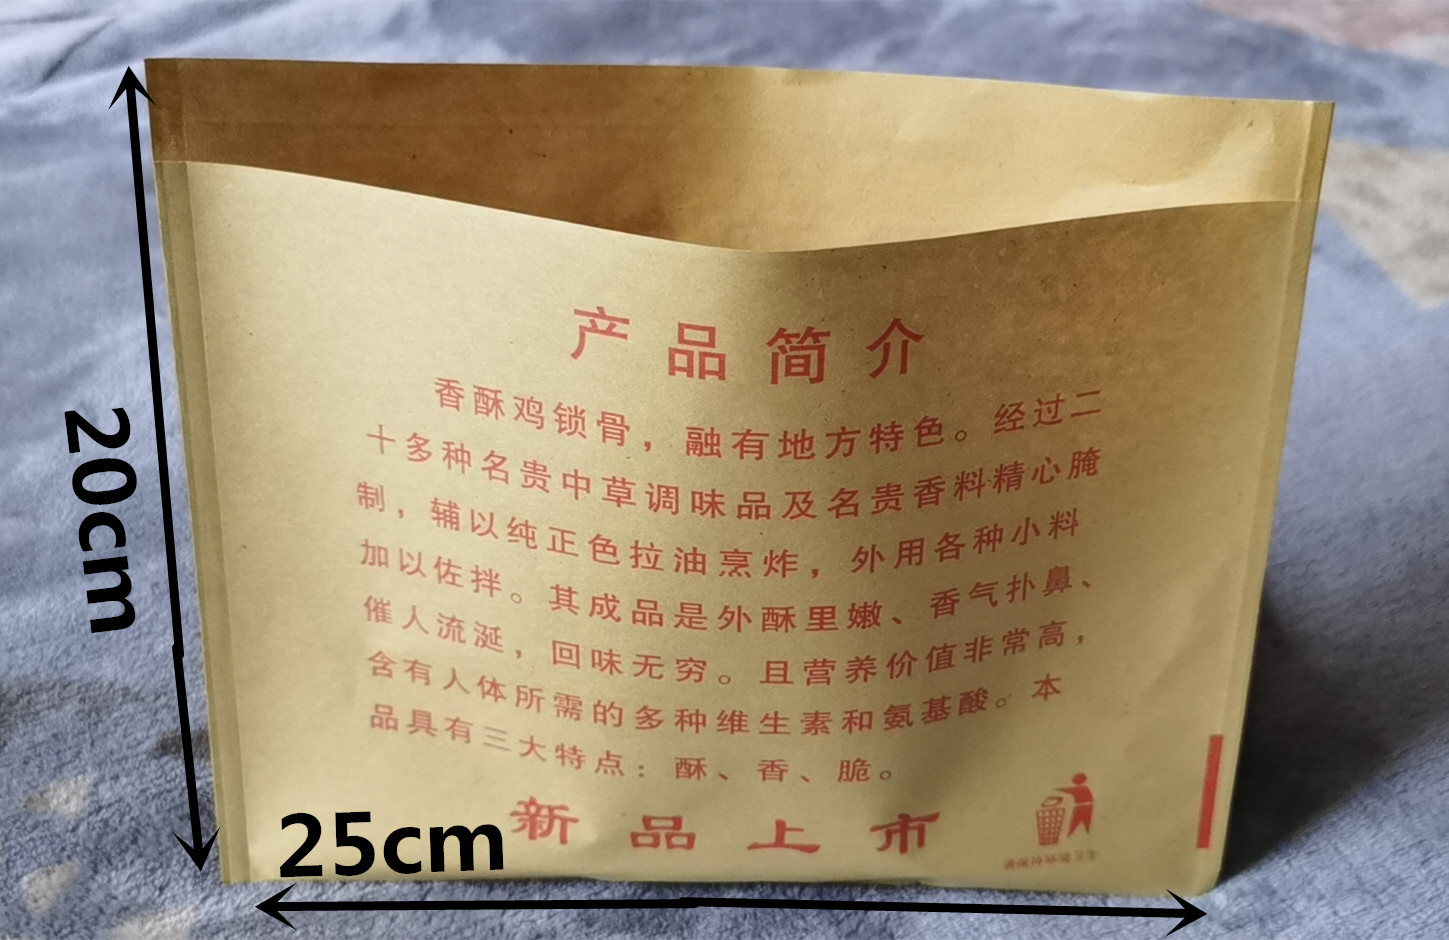 产品简介
香酥鸡锁骨，融有地方特色。经过二
十多种名贵中草调味品及名贵香料精心腌
制，辅以纯正色拉油烹炸，外用各种小料
加以佐拌。其成品是外酥里嫩、香气扑鼻、
催人流涎，回味无穷。且营养价值非常高，
含有人体所需的多种维生素和氨基酸。本
品具有三大特点：酥、香、脆。
新品上市
20cm
25cm